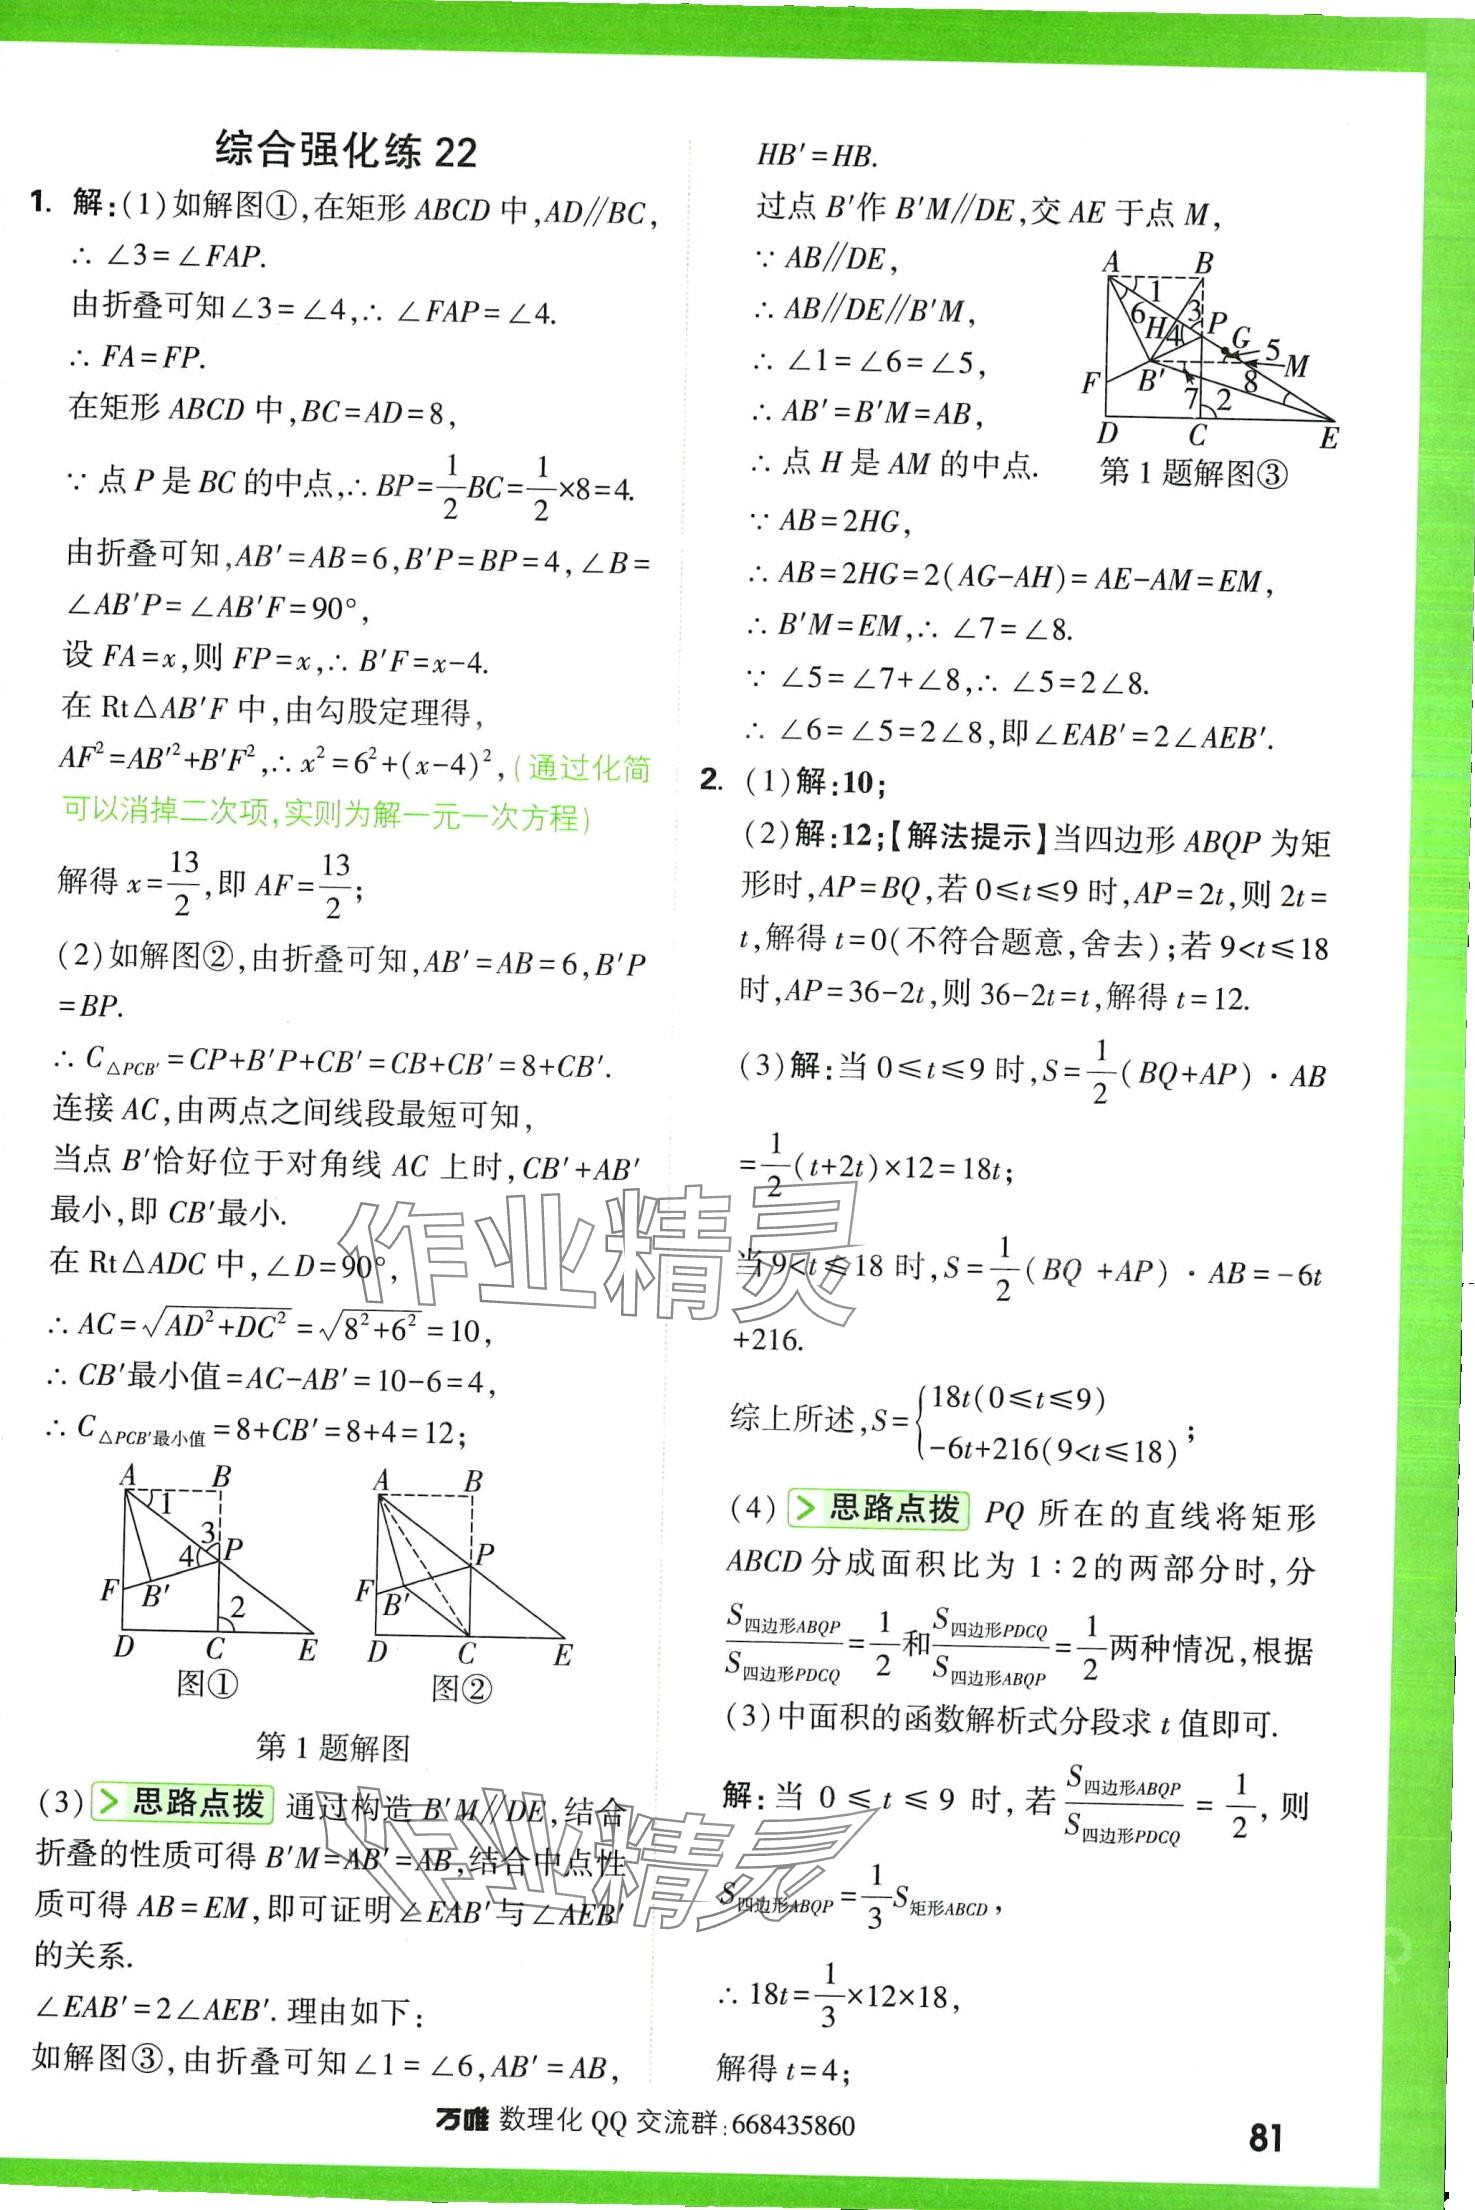 综合强化练 22
1. 解:(1)如解图①,在矩形 ABCD 中,AD∥BC,
∴ ∠3=∠FAP.
由折叠可知∠3=∠4,∴ ∠FAP=∠4.
∴ FA=FP.
在矩形 ABCD 中,BC=AD=8,
∵ 点 P 是 BC 的中点,∴ BP=1/2BC=1/2×8=4.
由折叠可知,AB′=AB=6,B′P=BP=4,∠B=
∠AB′P=∠AB′F=90°,
设 FA=x,则 FP=x,∴ B′F=x-4.
在 Rt△AB′F 中,由勾股定理得,
AF²=AB′²+B′F²,∴ x²=6²+(x-4)²,(通过化简
可以消掉二次项,实则为解一元一次方程)
解得 x=13/2,即 AF=13/2;
(2)如解图②,由折叠可知,AB′=AB=6,B′P
=BP.
∴ C△PCB′=CP+B′P+CB′=CB+CB′=8+CB′.
连接 AC,由两点之间线段最短可知,
当点 B′恰好位于对角线 AC 上时,CB′+AB′
最小,即 CB′最小.
在 Rt△ADC 中,∠D=90°,
∴ AC=√(AD²+DC²)=√(8²+6²)=10,
∴ CB′最小值=AC-AB′=10-6=4,
∴ C△PCB′最小值=8+CB′=8+4=12;
A B 1 3 4 P F B′ 2 D C E
图①
A B P F B′ D C E
图②
第 1 题解图
(3) > 思路点拨 通过构造 B′M∥DE,结合
折叠的性质可得 B′M=AB′=AB,结合中点性
质可得 AB=EM,即可证明∠EAB′与∠AEB′
的关系.
∠EAB′=2∠AEB′.理由如下:
如解图③,由折叠可知∠1=∠6,AB′=AB,
HB′=HB.
过点 B′作 B′M∥DE,交 AE 于点 M,
∵ AB∥DE,
∴ AB∥DE∥B′M,
∴ ∠1=∠6=∠5,
∴ AB′=B′M=AB,
∴ 点 H 是 AM 的中点.
A B 1 6 H 3 4 P G 5 M F B′ 7 8 2 D C E
第 1 题解图③
∵ AB=2HG,
∴ AB=2HG=2(AG-AH)=AE-AM=EM,
∴ B′M=EM,∴ ∠7=∠8.
∵ ∠5=∠7+∠8,∴ ∠5=2∠8.
∴ ∠6=∠5=2∠8,即∠EAB′=2∠AEB′.
2. (1)解:10;
(2)解:12;【解法提示】当四边形 ABQP 为矩
形时,AP=BQ,若 0≤t≤9 时,AP=2t,则 2t=
t,解得 t=0(不符合题意,舍去);若 9<t≤18
时,AP=36-2t,则 36-2t=t,解得 t=12.
(3)解:当 0≤t≤9 时,S=1/2(BQ+AP)·AB
=1/2(t+2t)×12=18t;
当 9<t≤18 时,S=1/2(BQ+AP)·AB=-6t
+216.
综上所述,S={18t(0≤t≤9)
-6t+216(9<t≤18);
(4) > 思路点拨 PQ 所在的直线将矩形
ABCD 分成面积比为 1:2 的两部分时,分
S四边形ABQP/S四边形PDCQ=1/2和S四边形PDCQ/S四边形ABQP=1/2两种情况,根据
(3)中面积的函数解析式分段求 t 值即可.
解:当 0≤t≤9 时,若 S四边形ABQP/S四边形PDCQ=1/2,则
S四边形ABQP=1/3S矩形ABCD,
∴ 18t=1/3×12×18,
解得 t=4;
作业精灵
作业精灵
万唯 数理化 QQ 交流群:668435860
81